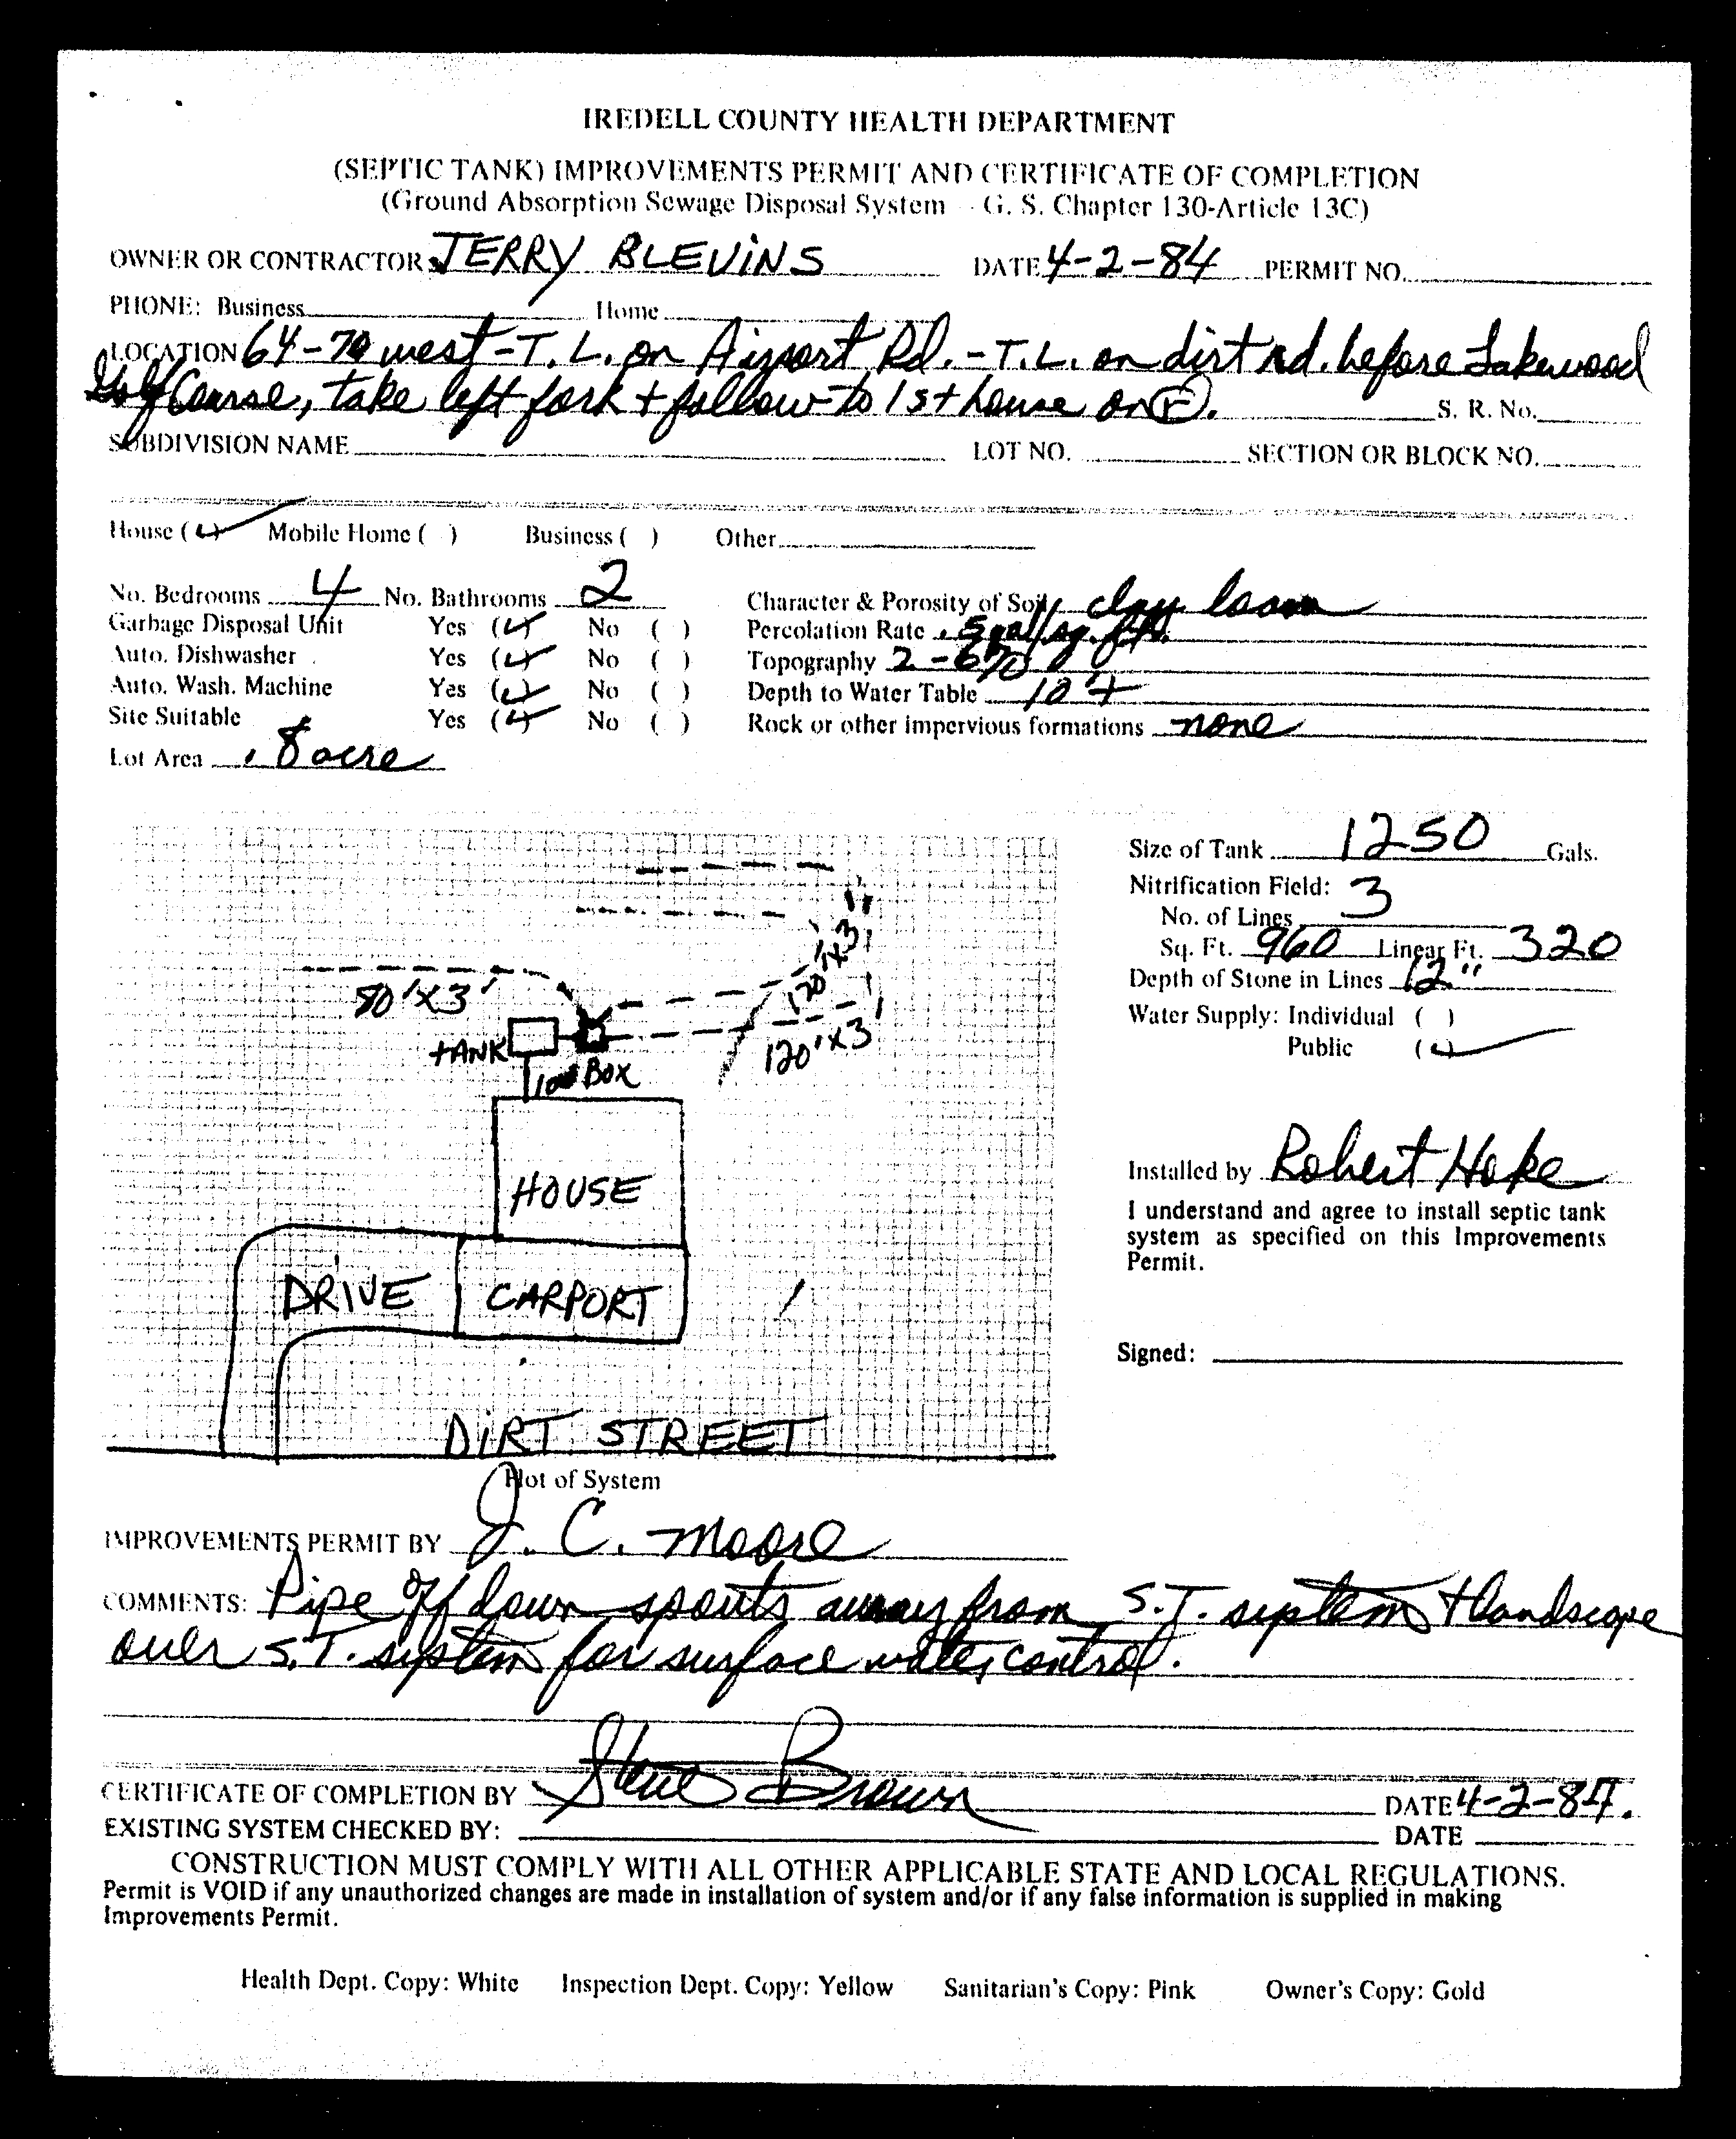 IREDELL COUNTY HEALTH DEPARTMENT
(SEPTIC TANK) IMPROVEMENTS PERMIT AND CERTIFICATE OF COMPLETION
(Ground Absorption Sewage Disposal System - G. S. Chapter 130-Article 13C)
OWNER OR CONTRACTOR JERRY BLEVINS DATE 4-2-84 PERMIT NO.
PHONE: Business Home
LOCATION 64-70 west - T.L. on Airport Rd. - T.L. on dirt rd. before Lakewood
Golf Course, take left fork + follow to 1st house on r.
S. R. No.
SUBDIVISION NAME LOT NO. SECTION OR BLOCK NO.
House (✓) Mobile Home ( ) Business ( ) Other
No. Bedrooms 4 No. Bathrooms 2 Character & Porosity of Soil clay loam
Garbage Disposal Unit Yes (✓) No ( ) Percolation Rate .5 gal/sq. ft.
Auto. Dishwasher Yes (✓) No ( ) Topography 2-6%
Auto. Wash. Machine Yes (✓) No ( ) Depth to Water Table 10'+
Site Suitable Yes (✓) No ( ) Rock or other impervious formations none
Lot Area .8 acre
Size of Tank 1250 Gals.
Nitrification Field:
No. of Lines 3
Sq. Ft. 960 Linear Ft. 320
Depth of Stone in Lines 12"
Water Supply: Individual ( )
Public (✓)
80'X3'
120'X3'
120'X3'
TANK
BOX
HOUSE
DRIVE
CARPORT
DIRT STREET
Installed by Robert Hoke
I understand and agree to install septic tank
system as specified on this Improvements
Permit.
Signed:
Plot of System
IMPROVEMENTS PERMIT BY J. C. Moore
COMMENTS: Pipe off down spouts away from S.T. system + landscape
over S.T. system for surface water control.
CERTIFICATE OF COMPLETION BY Steve Brown DATE 4-2-84.
EXISTING SYSTEM CHECKED BY: DATE
CONSTRUCTION MUST COMPLY WITH ALL OTHER APPLICABLE STATE AND LOCAL REGULATIONS.
Permit is VOID if any unauthorized changes are made in installation of system and/or if any false information is supplied in making
Improvements Permit.
Health Dept. Copy: White Inspection Dept. Copy: Yellow Sanitarian's Copy: Pink Owner's Copy: Gold